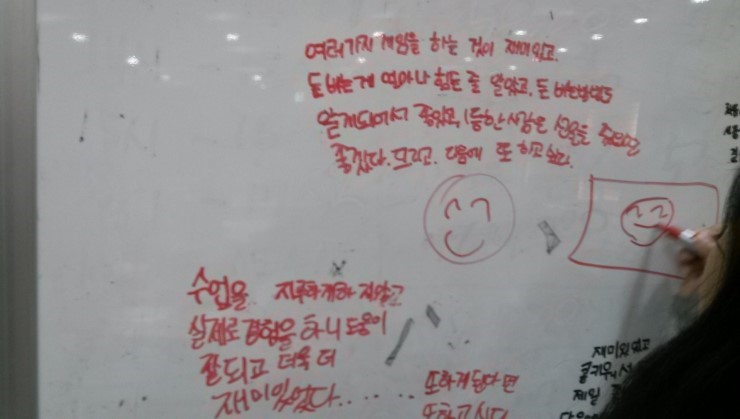 여러가지 게임을 하는 것이 재미있고.
돈 버는게 얼마나 힘든 줄 알았고, 돈 버는방법도
알게되어서 좋았고, 1등한사람은 선물을 줬으면
좋겠다. 그리고, 다음에 또 하고싶다.
수업을 지루하게하지않고
실제로 경험을 하니 도움이
잘되고 더욱 더
재미있었다......
또하게된다면
또하고싶다
재미있었고
제일